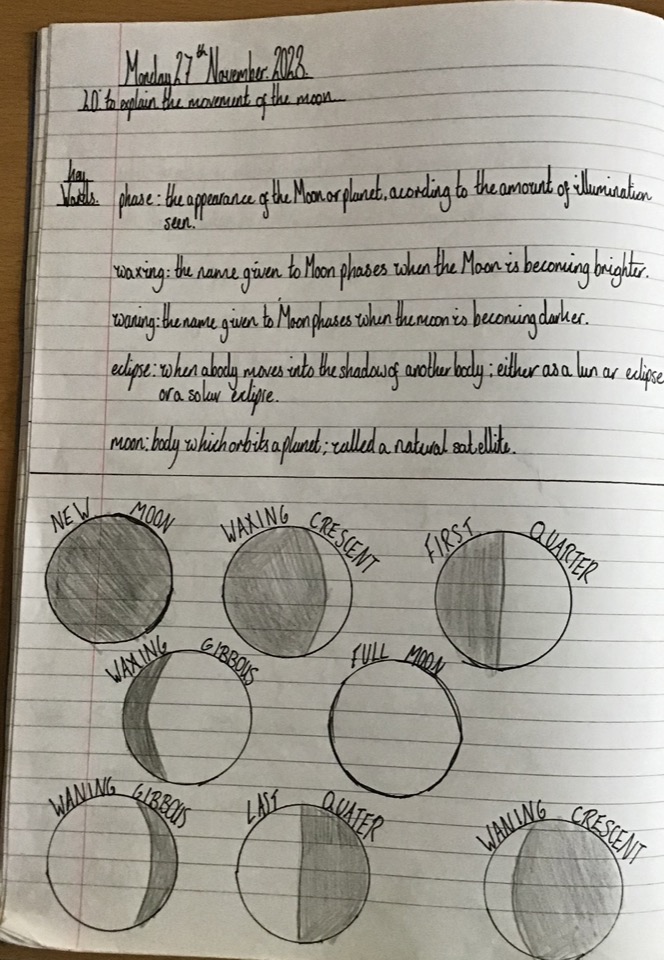 Monday 27th November. 2023.
LO: to explain the movement of the moon
key
Words.
phase: the appearance of the Moon or planet, acording to the amount of illumination
seen.
waxing: the name given to Moon phases when the Moon is becoming brighter.
waning: the name given to Moon phases when the moon is becoming darker.
eclipse: when a body moves into the shadow of another body; either as a lun ar eclipse
or a solar eclipse.
moon: body which orbits a planet; called a natural satellite.
NEW MOON
WAXING CRESCENT
FIRST QUARTER
WAXING GIBBOUS
FULL MOON
WANING GIBBOUS
LAST QUATER
WANING CRESCENT